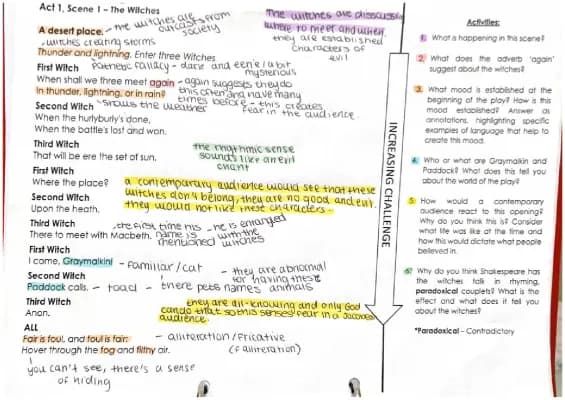 Act 1, Scene 1 – The Witches
- the witches are
outcasts from
society
The witches are disscussing
where to meet and when
they are established
characters of
evil
A desert place.
- witches creating storms
Thunder and lightning. Enter three Witches
First Witch
Pathetic fallacy - dark and eerie / a bit
mysterious
When shall we three meet again
- again suggests they do
this often and have many
times before - this creates
fear in the audience.
In thunder, lightning, or in rain?
Second Witch
- shows the weather
When the hurlyburly's done,
When the battle's lost and won.
Third Witch
That will be ere the set of sun.
the rhythmic sense
sounds like an evil
chant
First Witch
Where the place?
a contemporary audience would see that these
witches don't belong, they are no good and evil.
they would not like these characters.
Second Witch
Upon the heath.
Third Witch
There to meet with Macbeth.
- the first time his
name is
mentioned
- he is entangled
with the
witches
First Witch
I come, Graymalkin!
- familiar / cat
- they are abnormal
for having these
names animals
Second Witch
Paddock calls.
- toad - their pets
Third Witch
Anon.
they are all-knowing and only God
can do that so this senses fear in a Jacobean
audience.
ALL
Fair is foul, and foul is fair:
- alliteration / fricative
(f alliteration)
Hover through the fog and filthy air.
you can't see, there's a sense
of hiding
INCREASING CHALLENGE
Activities:
1. What is happening in this scene?
2. What does the adverb 'again' suggest about the witches?
3. What mood is established at the
beginning of the play? How is this
mood established? Answer as
annotations, highlighting specific
examples of language that help to
create this mood.
4. Who or what are Graymalkin and
Paddock? What does this tell you
about the world of the play?
5. How would a contemporary
audience react to this opening?
Why do you think this is? Consider
what life was like at the time and
how this would dictate what people
believed in.
6. Why do you think Shakespeare has
the witches talk in rhyming,
paradoxical couplets? What is the
effect and what does it tell you
about the witches?
*Paradoxical – Contradictory